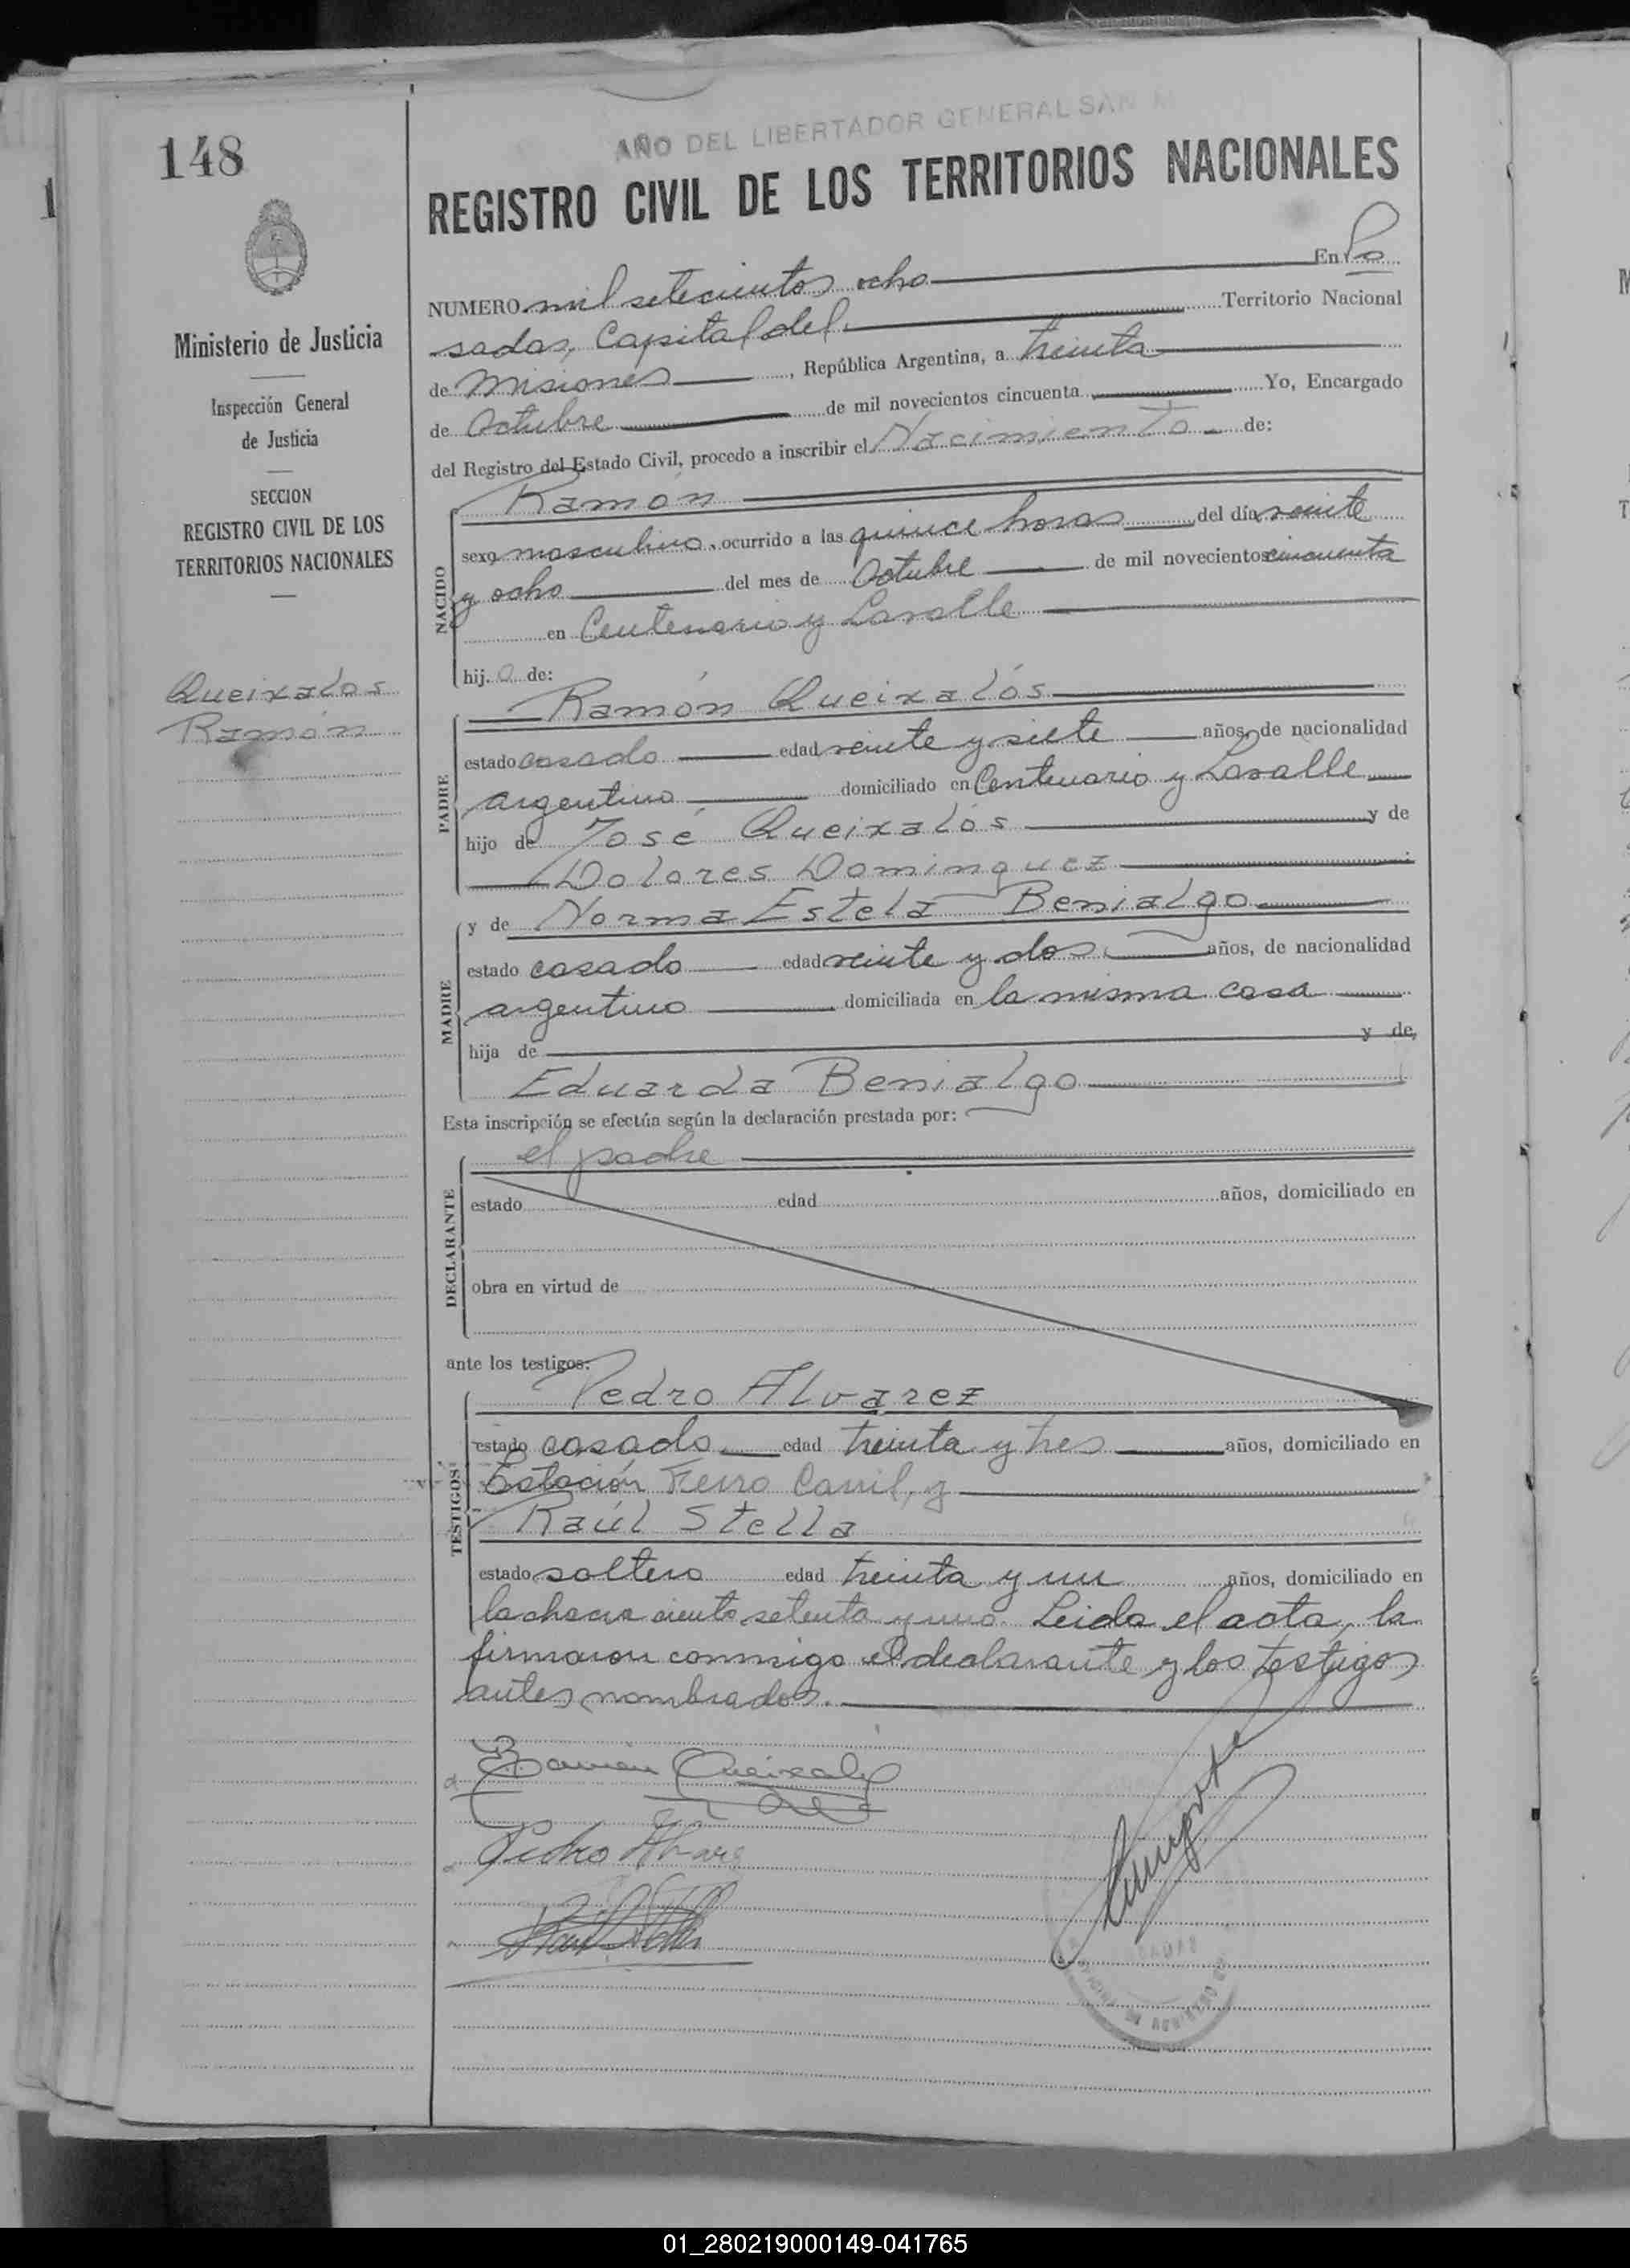 148
AÑO DEL LIBERTADOR GENERAL SAN M
REGISTRO CIVIL DE LOS TERRITORIOS NACIONALES
Ministerio de Justicia
Inspección General
de Justicia
SECCION
REGISTRO CIVIL DE LOS
TERRITORIOS NACIONALES
Queixalos
Ramón
NUMERO mil setecientos ocho En Po
sadas, Capital del Territorio Nacional
de Misiones, República Argentina, a treinta
de Octubre de mil novecientos cincuenta Yo, Encargado
del Registro del Estado Civil, procedo a inscribir el Nacimiento de:
NACIDO
Ramón
sexo masculino, ocurrido a las quince horas del día veinte
y ocho del mes de Octubre de mil novecientos cincuenta
en Centenario y Lavalle
hij.o de:
PADRE
Ramón Queixalós
estado casado edad veinte y siete años, de nacionalidad
argentino domiciliado en Centenario y Lavalle
hijo de José Queixalós y de
Dolores Dominguez
MADRE
y de Norma Estela Benialgo
estado casada edad veinte y dos años, de nacionalidad
argentina domiciliada en la misma casa
hija de y de
Eduarda Benialgo
Esta inscripción se efectúa según la declaración prestada por:
DECLARANTE
el padre
estado edad años, domiciliado en
obra en virtud de
ante los testigos:
TESTIGOS
Pedro Alvarez
estado casado edad treinta y tres años, domiciliado en
Estación Ferro Carril, y
Raúl Stella
estado soltero edad treinta y un años, domiciliado en
la chacra ciento setenta y uno. Leida el acta, la
firmaron conmigo el declarante y los testigos
antes nombrados.
Ramón Queixalós
Pedro Alvarez
01_280219000149-041765